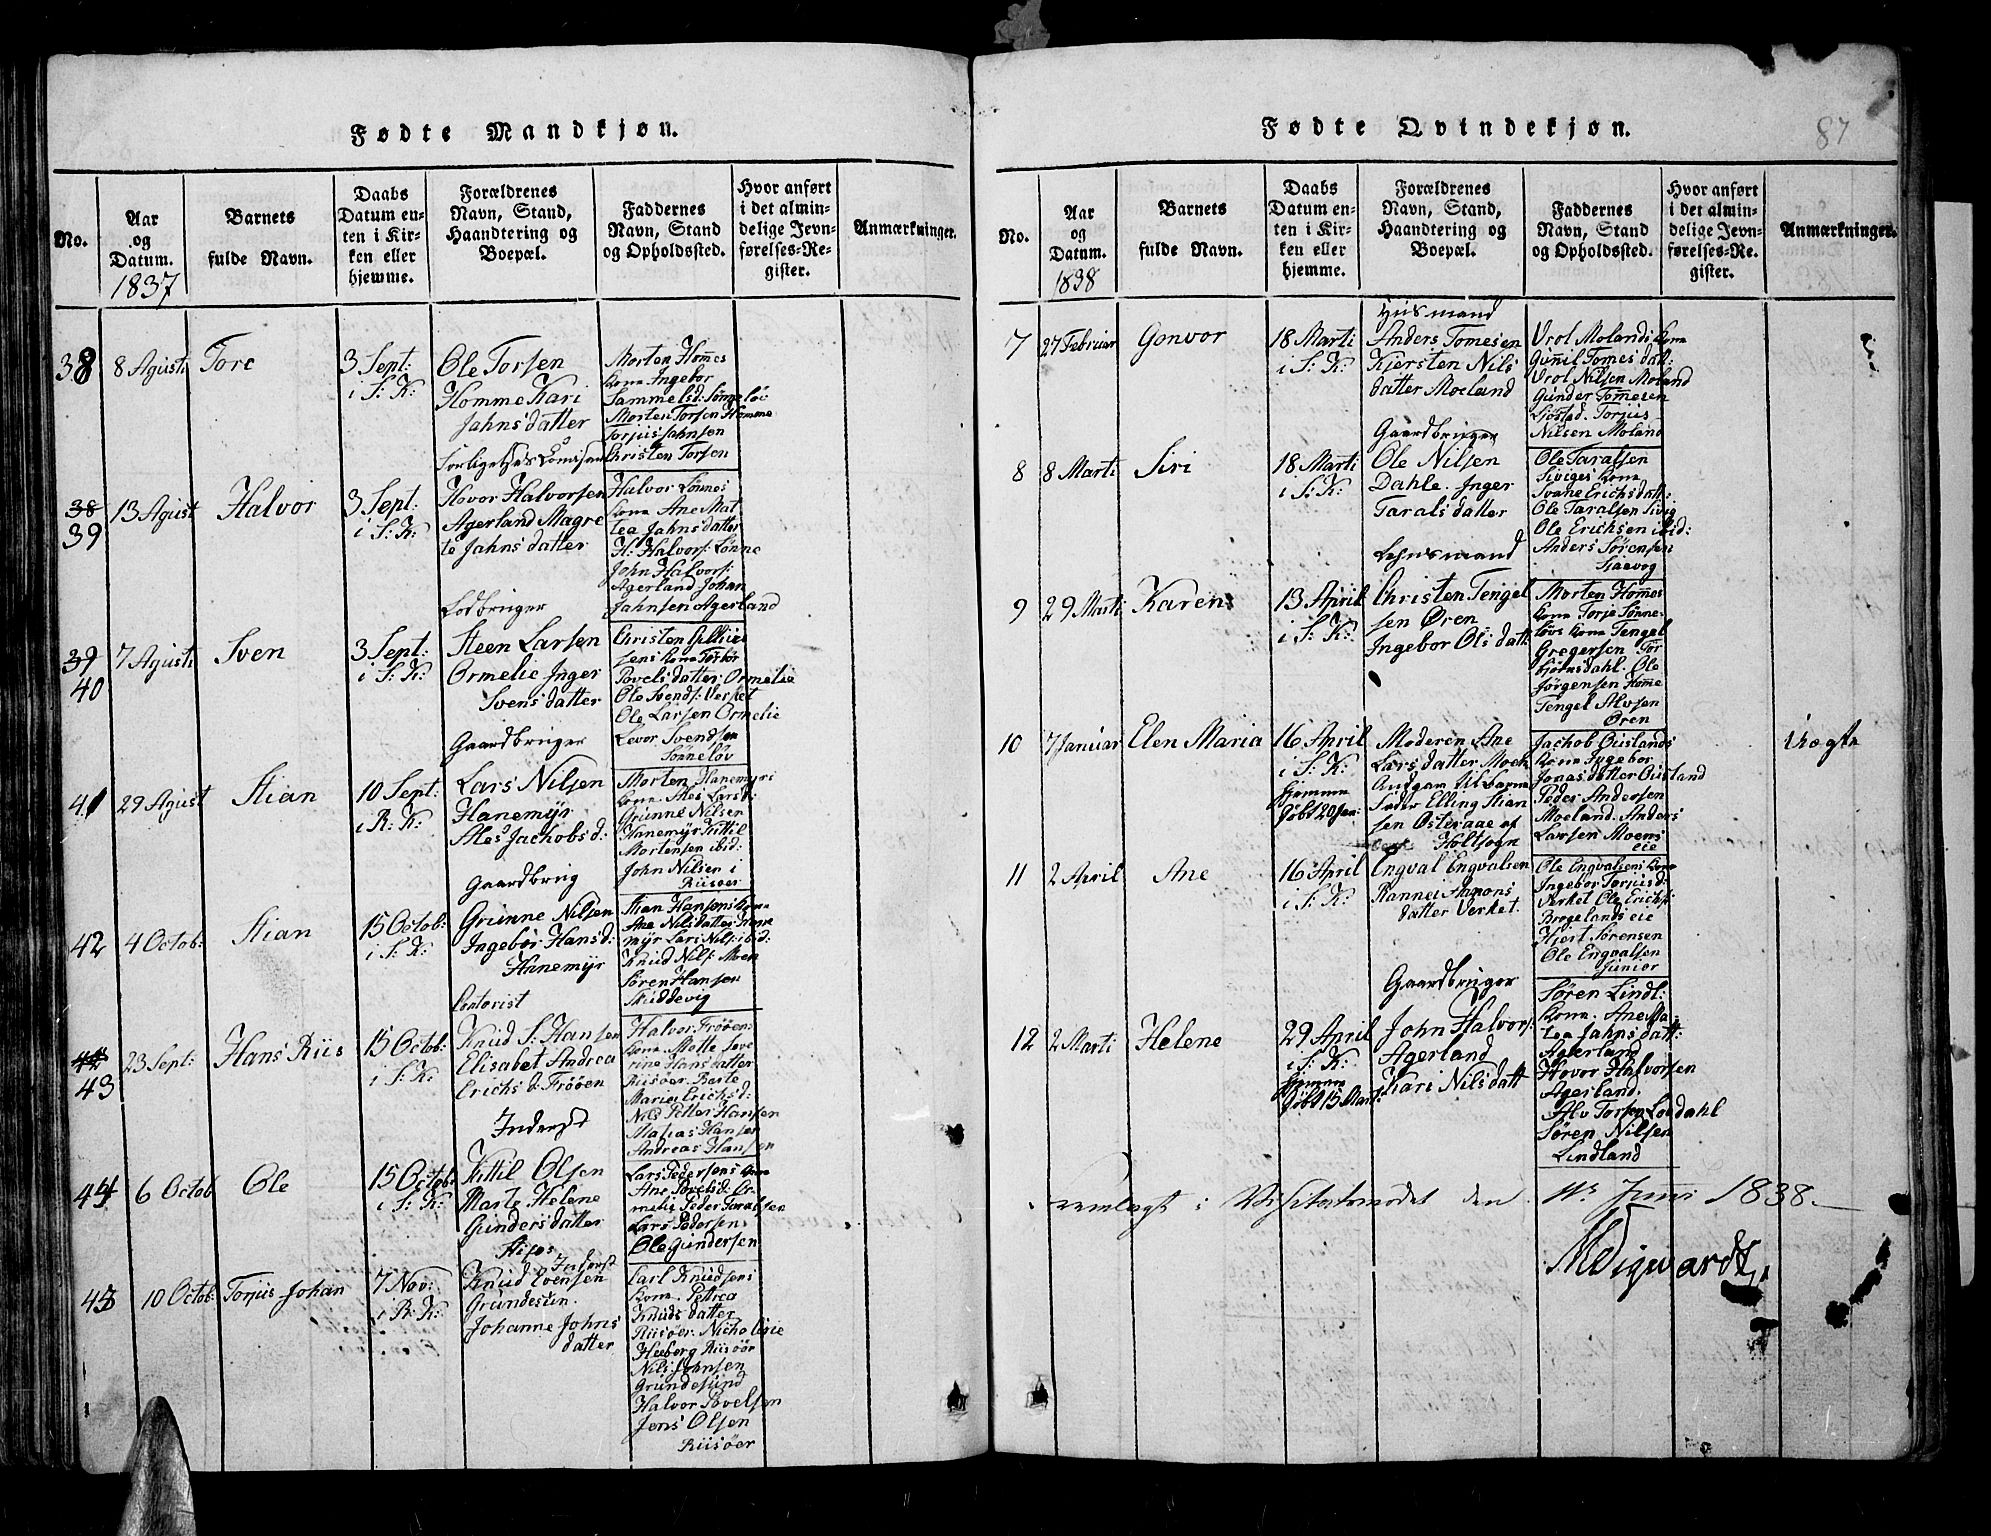 Fødte Mandkjøn.
No.
Aar og Datum.
1837
Barnets fulde Navn.
Daabs Datum enten i Kirken eller hjemme.
Forældrenes Navn, Stand, Haandtering og Boepæl.
Faddernes Navn, Stand og Opholdssted.
Hvor anført i det almindelige Jevnførelses-Register.
Anmærkninger.
38
8 Agusti
Tore
3 Sept:
i S: K:
Ole Torsen
Homme Kari
Jahns datter
Morten Homes
Kone Ingebor
Sammelsd: Sønneløv
Morten Torsen Homme
Torjus Jahnsen
Christen Torsen
38
39
13 Agust
Halvor
3 Sept:
i S: K:
Hovor Halvorsen
Agerland Magre
te Jahns datter
Halvor Lønnes
Kone Ane Mat
tea Jahns datter
H: Halvors: Lønne
John Halvors:
Agerland Johan
Jahnsen Agerland
39
40
7 Agusti
Sven
3 Sept:
i S: K:
Lodbruger
Steen Larsen
Ormelie Inger
Svens datter
Christen
sens Kone Torbor
Povels datter Ormelie
Ole Svends: Verket
Ole Larsen Ormelie
Levor Svendsen
Sønneløv
41
29 Agust
Stian
10 Sept:
i R: K:
Gaardbruger
Lars Nilsen
Hanemyr
Ales Jachobs d:
Morten Hanemyrs
Kone Ales Lars d:
Grunne Nilsen
Hanemyr Kittil
Mortensen ibid:
John Nilsen i
Riisøer
42
4 Octob:
Stian
15 Octob:
i S: K:
Gaardbrug
Grunne Nilsen
Ingebor Hans d:
Hanemyr
Stian Hansens Kone
Ane Nils datter Hane
myr Lars Nils: ibid:
Knud Nils: Moen
Søren Hansen
Skuddevig
44
43
23 Sept:
Hans Riis
15 Octob:
i S: K:
Knud S: Hansen
Elisabet Andrea
Erichs d: Frøøen
Halvor Frøøens
Kone Mette Seve
rine Hans datter
Riisøer. Berte
Marie Erichs d:
Nils Petter Hansen
Matias Hansen
Andreas Hansen
44
6 Octob
Ole
15 Octob:
i S: K:
Inderst
Kittil Olsen
Marte Helene
Gunders datter
Lars Pedersens Kone
Ane Povels d: Or
melie Peder Taralsen
Lars Pedersen
Ole Gundersen
45
10 Octob:
Torjus Johan
7 Nov:
i R: K:
Inderst
Knud Evensen
Grundesun.
Johanne Johns
datter
Carl Knudsens
Kone Petrea
Knuds datter
Riisøer. Nicholine
Heeborg Riisøer
Nils Johnsen
Grundesund
Halvor Povelsen
Jens Olsen
Riisøer
Fødte Qvindekjøn.
87
No.
Aar og Datum.
1838
Barnets fulde Navn.
Daabs Datum enten i Kirken eller hjemme.
Forældrenes Navn, Stand, Haandtering og Boepæl.
Faddernes Navn, Stand og Opholdssted.
Hvor anført i det almindelige Jevnførelses-Register.
Anmærkninger.
7
27 Februar
Gonvor
18 Marti
i S: K:
Husmand
Anders Tomesen
Kjersten Nils
datter Moeland
Vrol Molands Kone
Gunil Tomes dat:
Vrol Nilsen Moland
Gunder Tomesen
Sjøstad. Torjus
Nilsen Moland
8
8 Marti
Siri
18 Marti
i S: K:
Gaardbruger
Ole Nilsen
Dahle. Inger
Tarals datter
Ole Taralsen
Siviges Kone
Svane Erichs datt:
Ole Taralsen Sivig
Ole Erichsen ibid:
Anders Sørensen
Saevog
9
29 Marti
Karen
13 April
i S: K:
Lehnsmand
Christen Tengel
sen Øren
Ingebor Ols datt
Morten Homes
Kone Torje Sønne
løvs Kone Tengel
Gregersen Tor
bjørnsdahl. Ole
Jørgensen Home
Tengel Alvsen
Øren
10
7 Januar
Elen Maria
16 April
i S: K:
Hjemme
døbt 20 Jan:
Moderen Ane
Lars datter Moen
Andgav til Barne
Fader Elling Stian
sen Osteraae af
Holtsogn
Jachob Ouslands
Kone Ingebor
Jonas datter Ousland
Peder Andersen
Moeland. Anders
Larsen Moens
eie
11
2 April
Ane
16 April
i S: K:
Engval Engvalsen
Rannei Amons
datter Verket.
Ole Engvalsens Kone
Ingebor Torjus d:
Verket Ole Erichs:
Brogelands eie
Hjert Sørensen
Ole Engvalsen
Junior
12
2 Marti
Helene
29 April
i S: K:
Hjemme
døbt 15 Mart:
Gaardbruger
John Halvors:
Agerland
Kari Nils datt
Søren Lindl:
Kone. Ane Ma
tea Jahns datt:
Agerland
Hovor Halvorsen
Agerland.
Alv Torsen Londahl
Søren Nilsen
Lindland
Fremlagt i Visitatsmødet den Juni 1838.